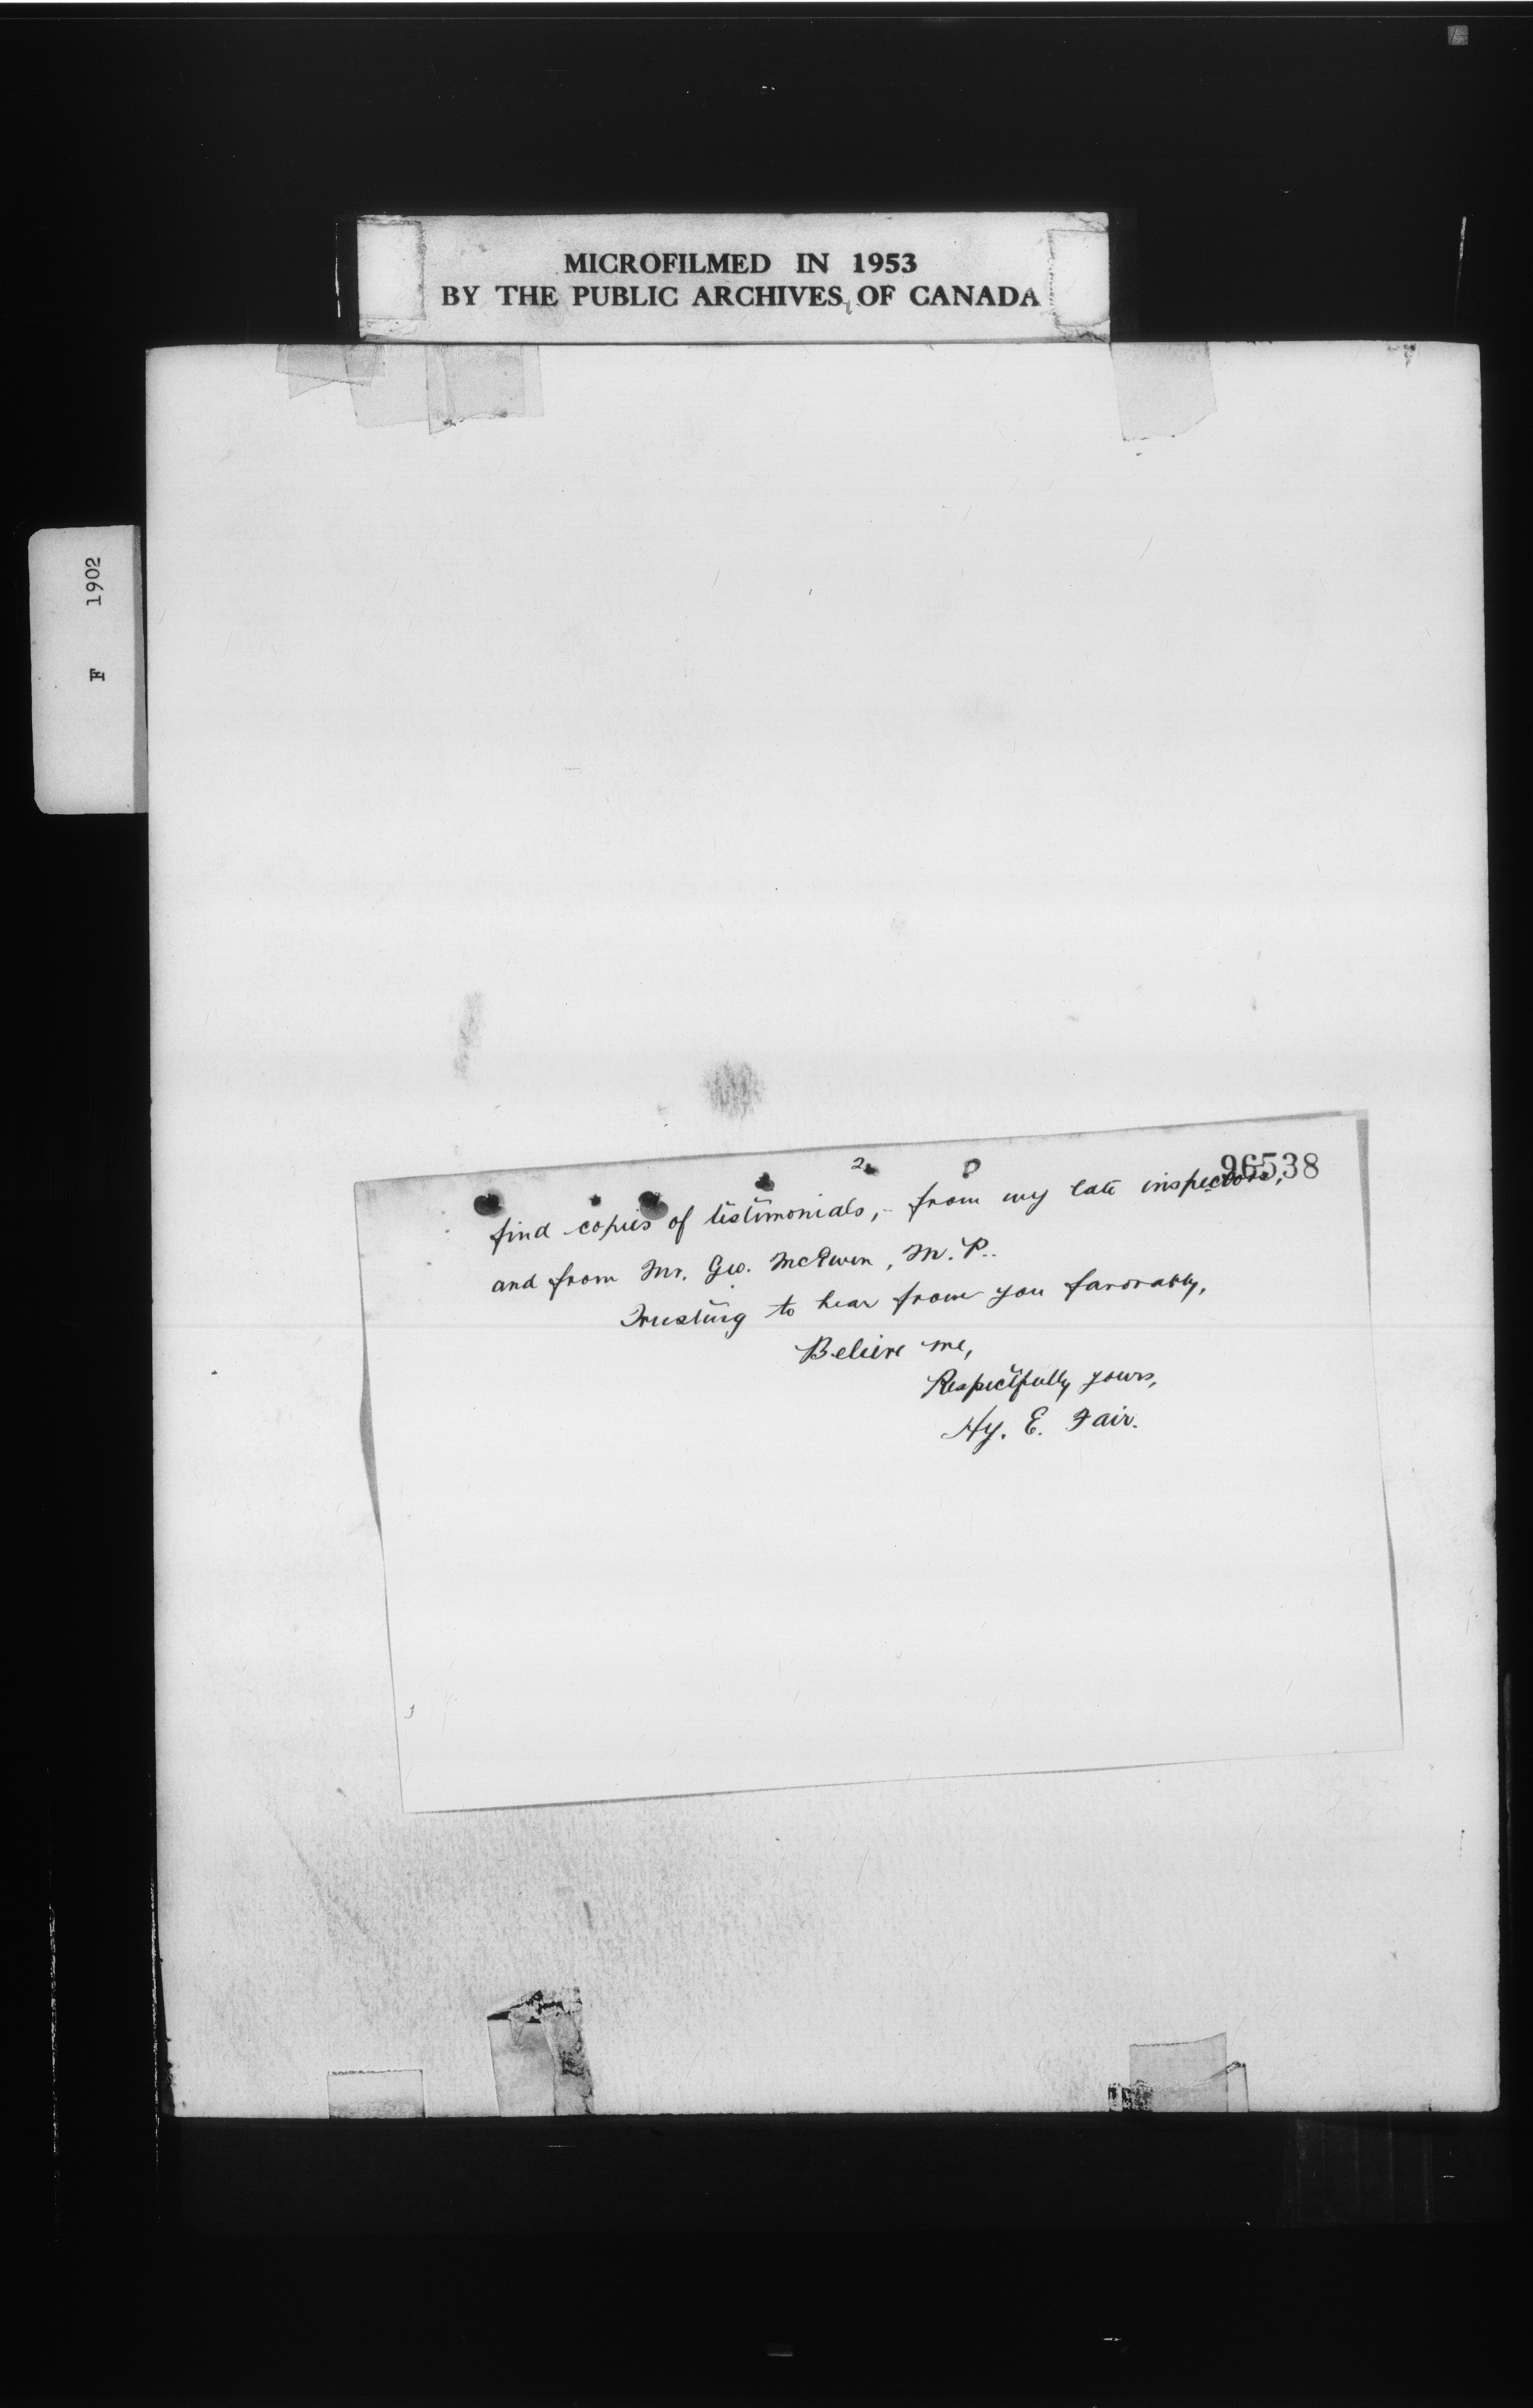 MICROFILMED IN 1953
BY THE PUBLIC ARCHIVES OF CANADA
F 1902
2
96538
find copies of testimonials, - from my late inspectors,
and from Mr. Geo. McEwen, M. P..
Trusting to hear from you favorably,
Believe me,
Respectfully yours,
Hy. E. Fair.